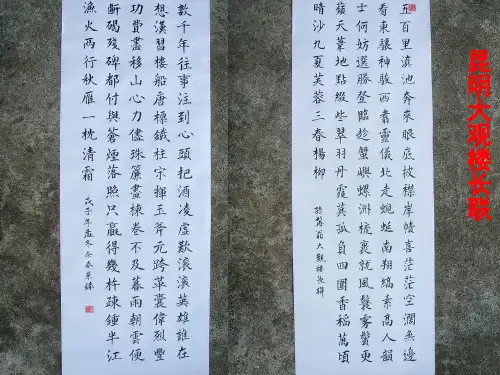 昆明大观楼长联
五百里滇池奔來眼底披襟岸幘喜茫茫空濶無邊
看東驤神駿西翥靈儀北走蜿蜒南翔縞素高人韻
士何妨選勝登臨趁蟹嶼螺洲梳裹就風鬟霧鬢更
蘋天葦地點綴些翠羽丹霞莫孤負四圍香稻萬頃
晴沙九夏芙蓉三春楊柳
孫髯翁大觀樓長聯
數千年往事注到心頭把酒凌虛歎滚滚英雄誰在
想漢習樓船唐標鐵柱宋揮玉斧元跨革囊偉烈豐
功費盡移山心力儘珠簾畫棟卷不及暮雨朝雲便
斷碣殘碑都付與蒼煙落照只贏得幾杵疎鐘半江
漁火兩行秋雁一枕清霜
戊子年孟冬余春